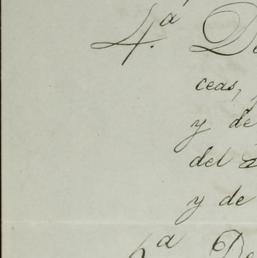 4.ª D
ceas,
y de
del
y de
6ª De